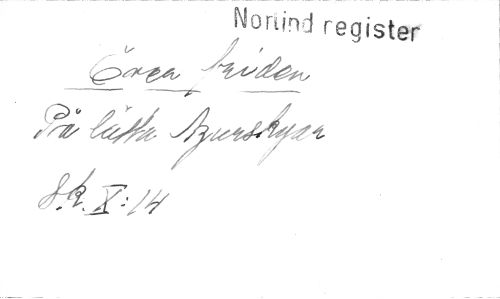 Norlind register
Över friden
På lätta Azurskyar
S.k. X:14